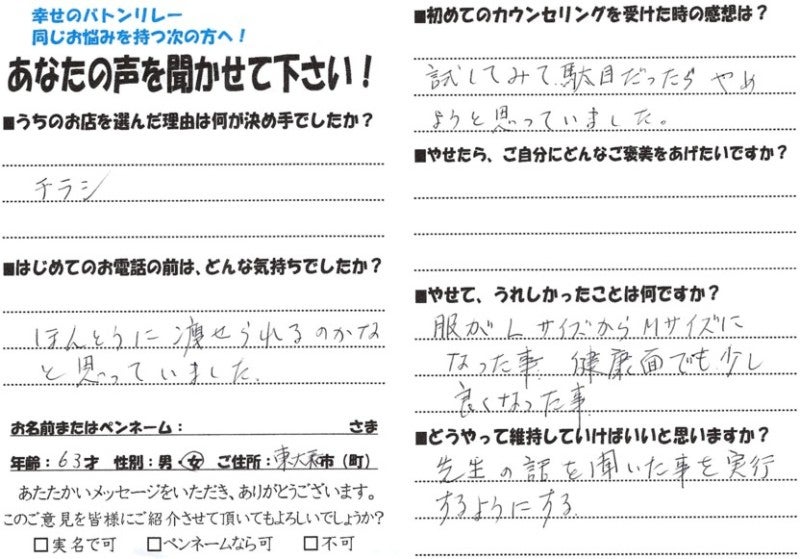 幸せのバトンリレー
同じお悩みを持つ次の方へ！
あなたの声を聞かせて下さい！
■うちのお店を選んだ理由は何が決め手でしたか？
チラシ
■はじめてのお電話の前は、どんな気持ちでしたか？
ほんとうに痩せられるのかな
と思っていました。
お名前またはペンネーム： さま
年齢：63才 性別：男・女 ご住所：東大和市（町）
あたたかいメッセージをいただき、ありがとうございます。
このご意見を皆様にご紹介させて頂いてもよろしいでしょうか？
□実名で可 □ペンネームなら可 □不可
■初めてのカウンセリングを受けた時の感想は？
試してみて駄目だったら やめ
ようと思っていました。
■やせたら、ご自分にどんなご褒美をあげたいですか？
■やせて、うれしかったことは何ですか？
服がLサイズからMサイズに
なった事 健康面でも少し
良くなった事
■どうやって維持していけばいいと思いますか？
先生の話を聞いた事を実行
するようにする